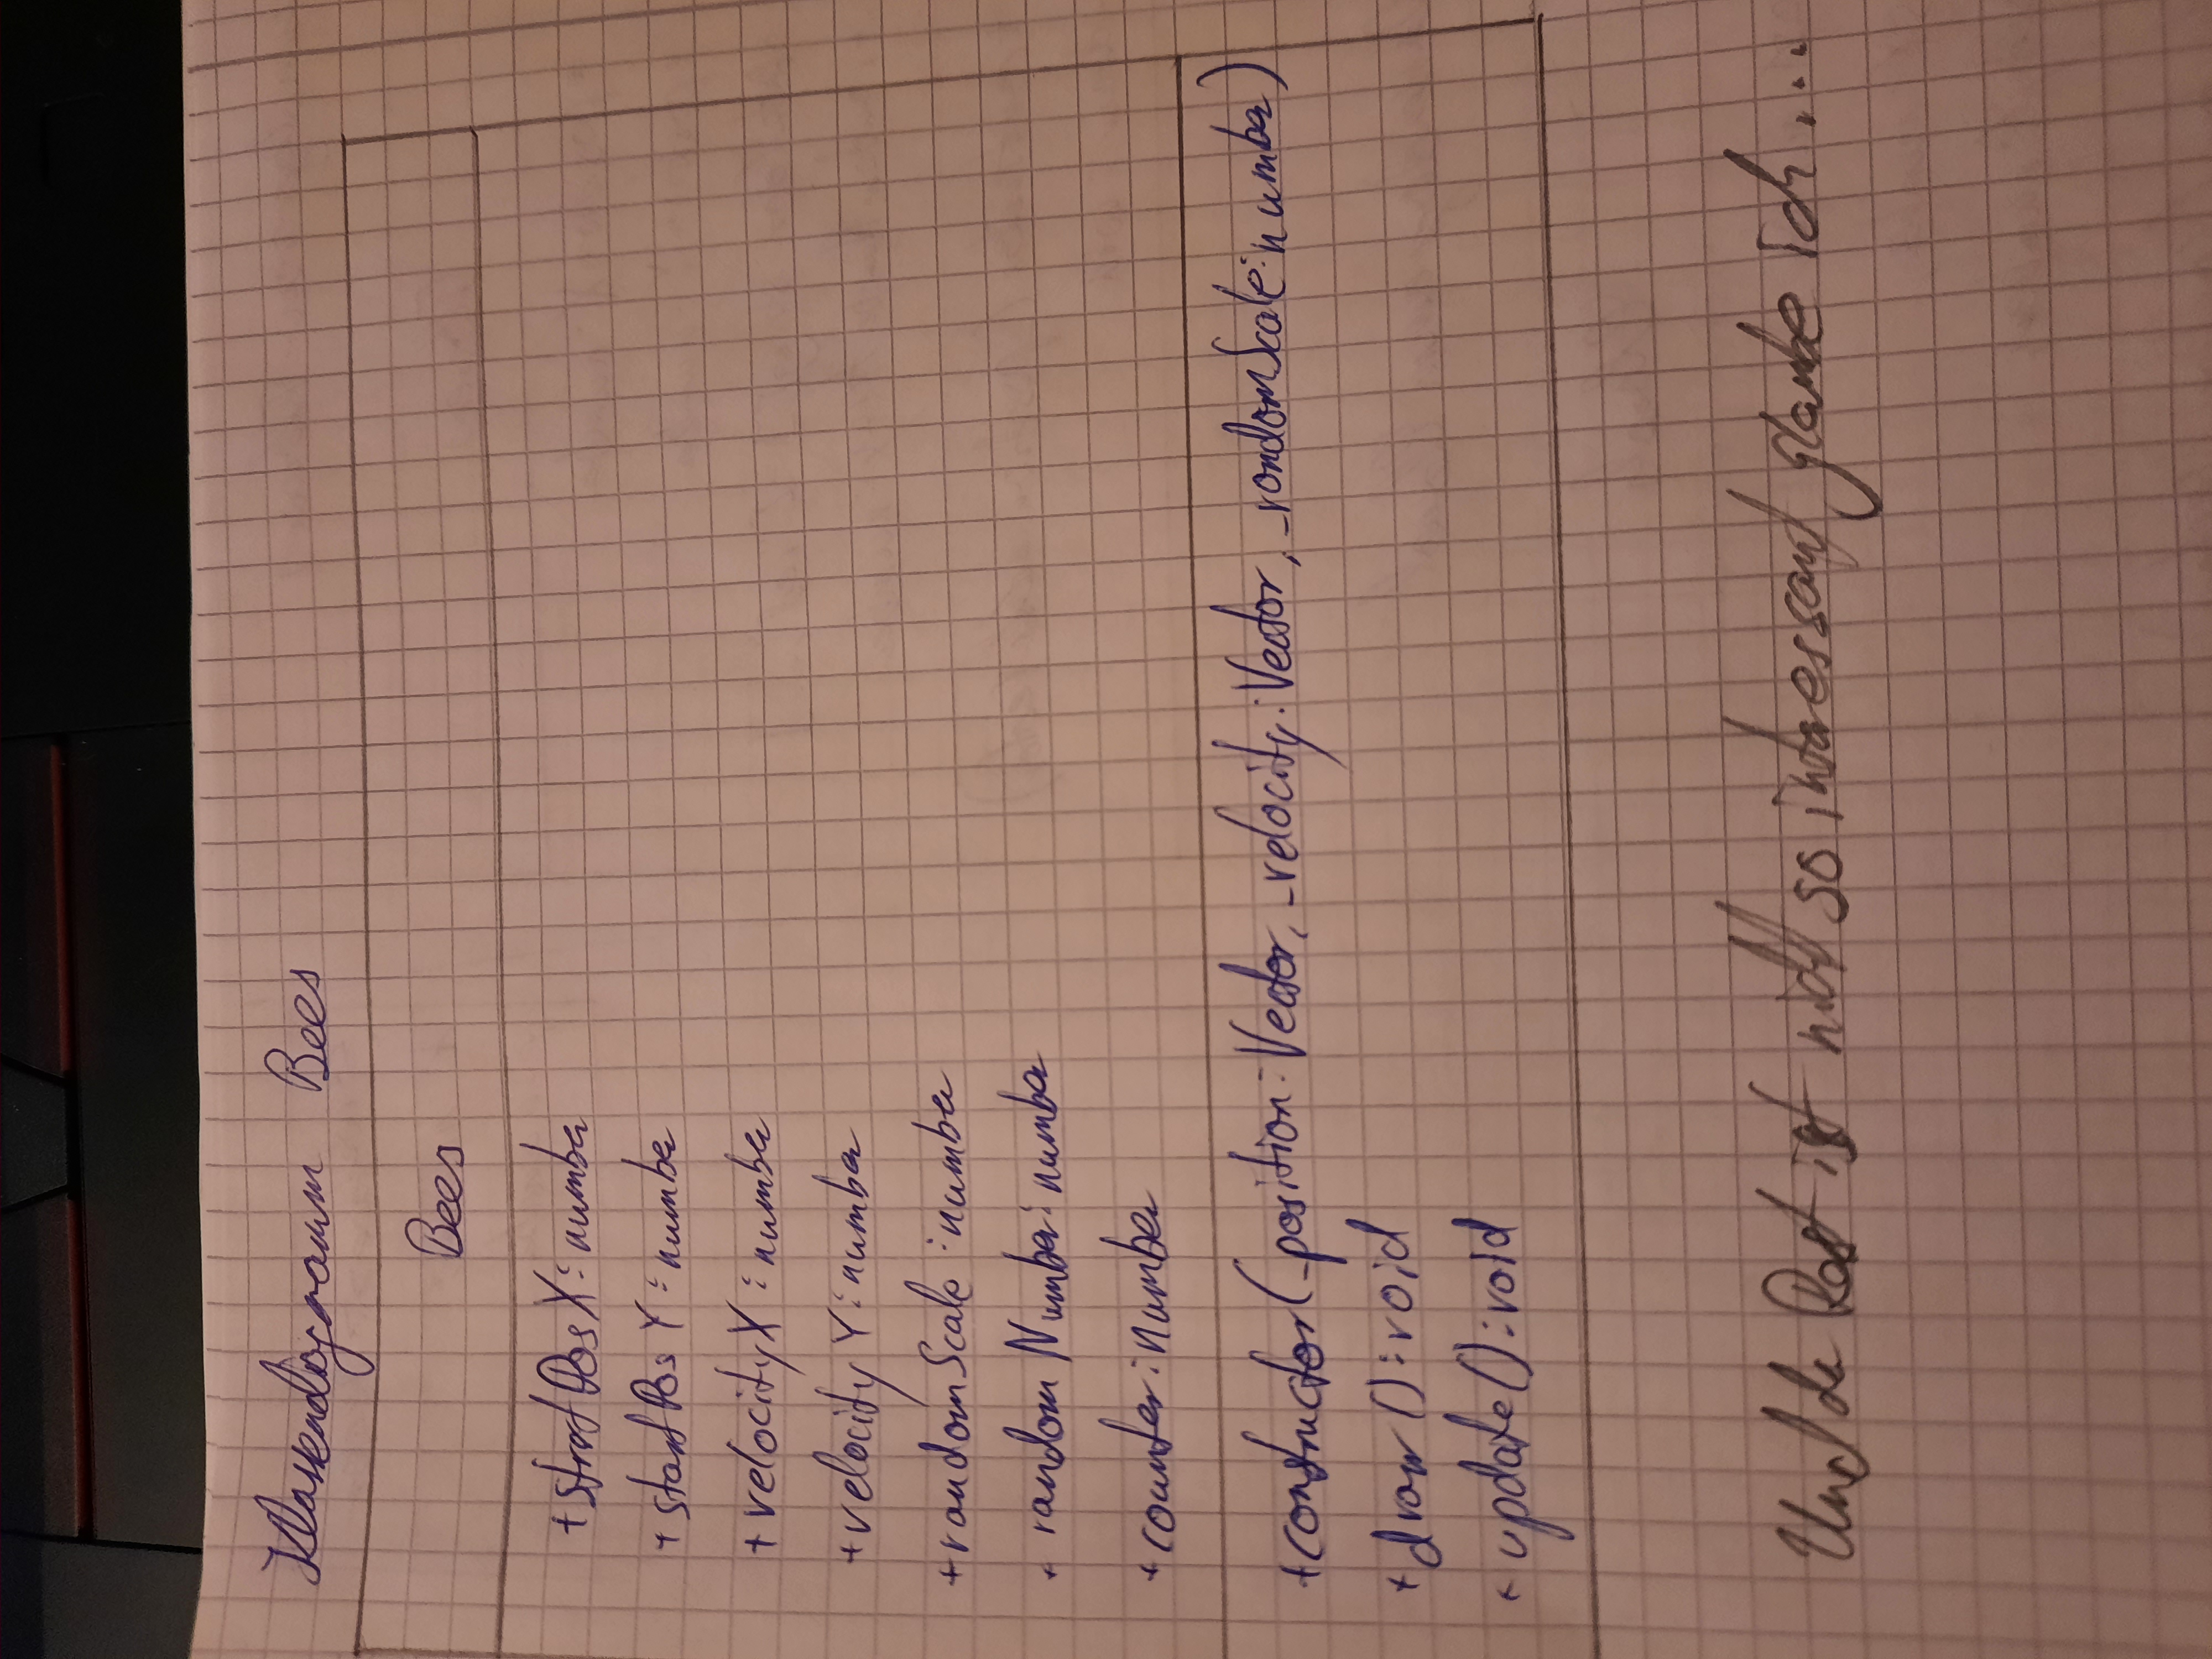 Klassendiagramm Bees
Bees
+ startPosX: number
+ startPosY: number
+ velocityX: number
+ velocityY: number
+ randomScale: number
+ randomNumber: number
+ counter: number
+ constructor(_position: Vector, _velocity: Vector, _randomScale: number)
+ draw(): void
+ update(): void
Und de Rest ist nicht so interessant glaube ich...